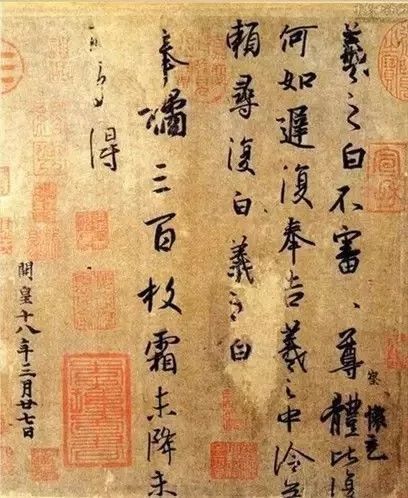 察
懷充
羲之白不審、尊體比復
何如遲復奉告羲之中冷無
賴尋復白羲之白
奉橘三百枚霜未降未
可多得
開皇十八年三月廿七日